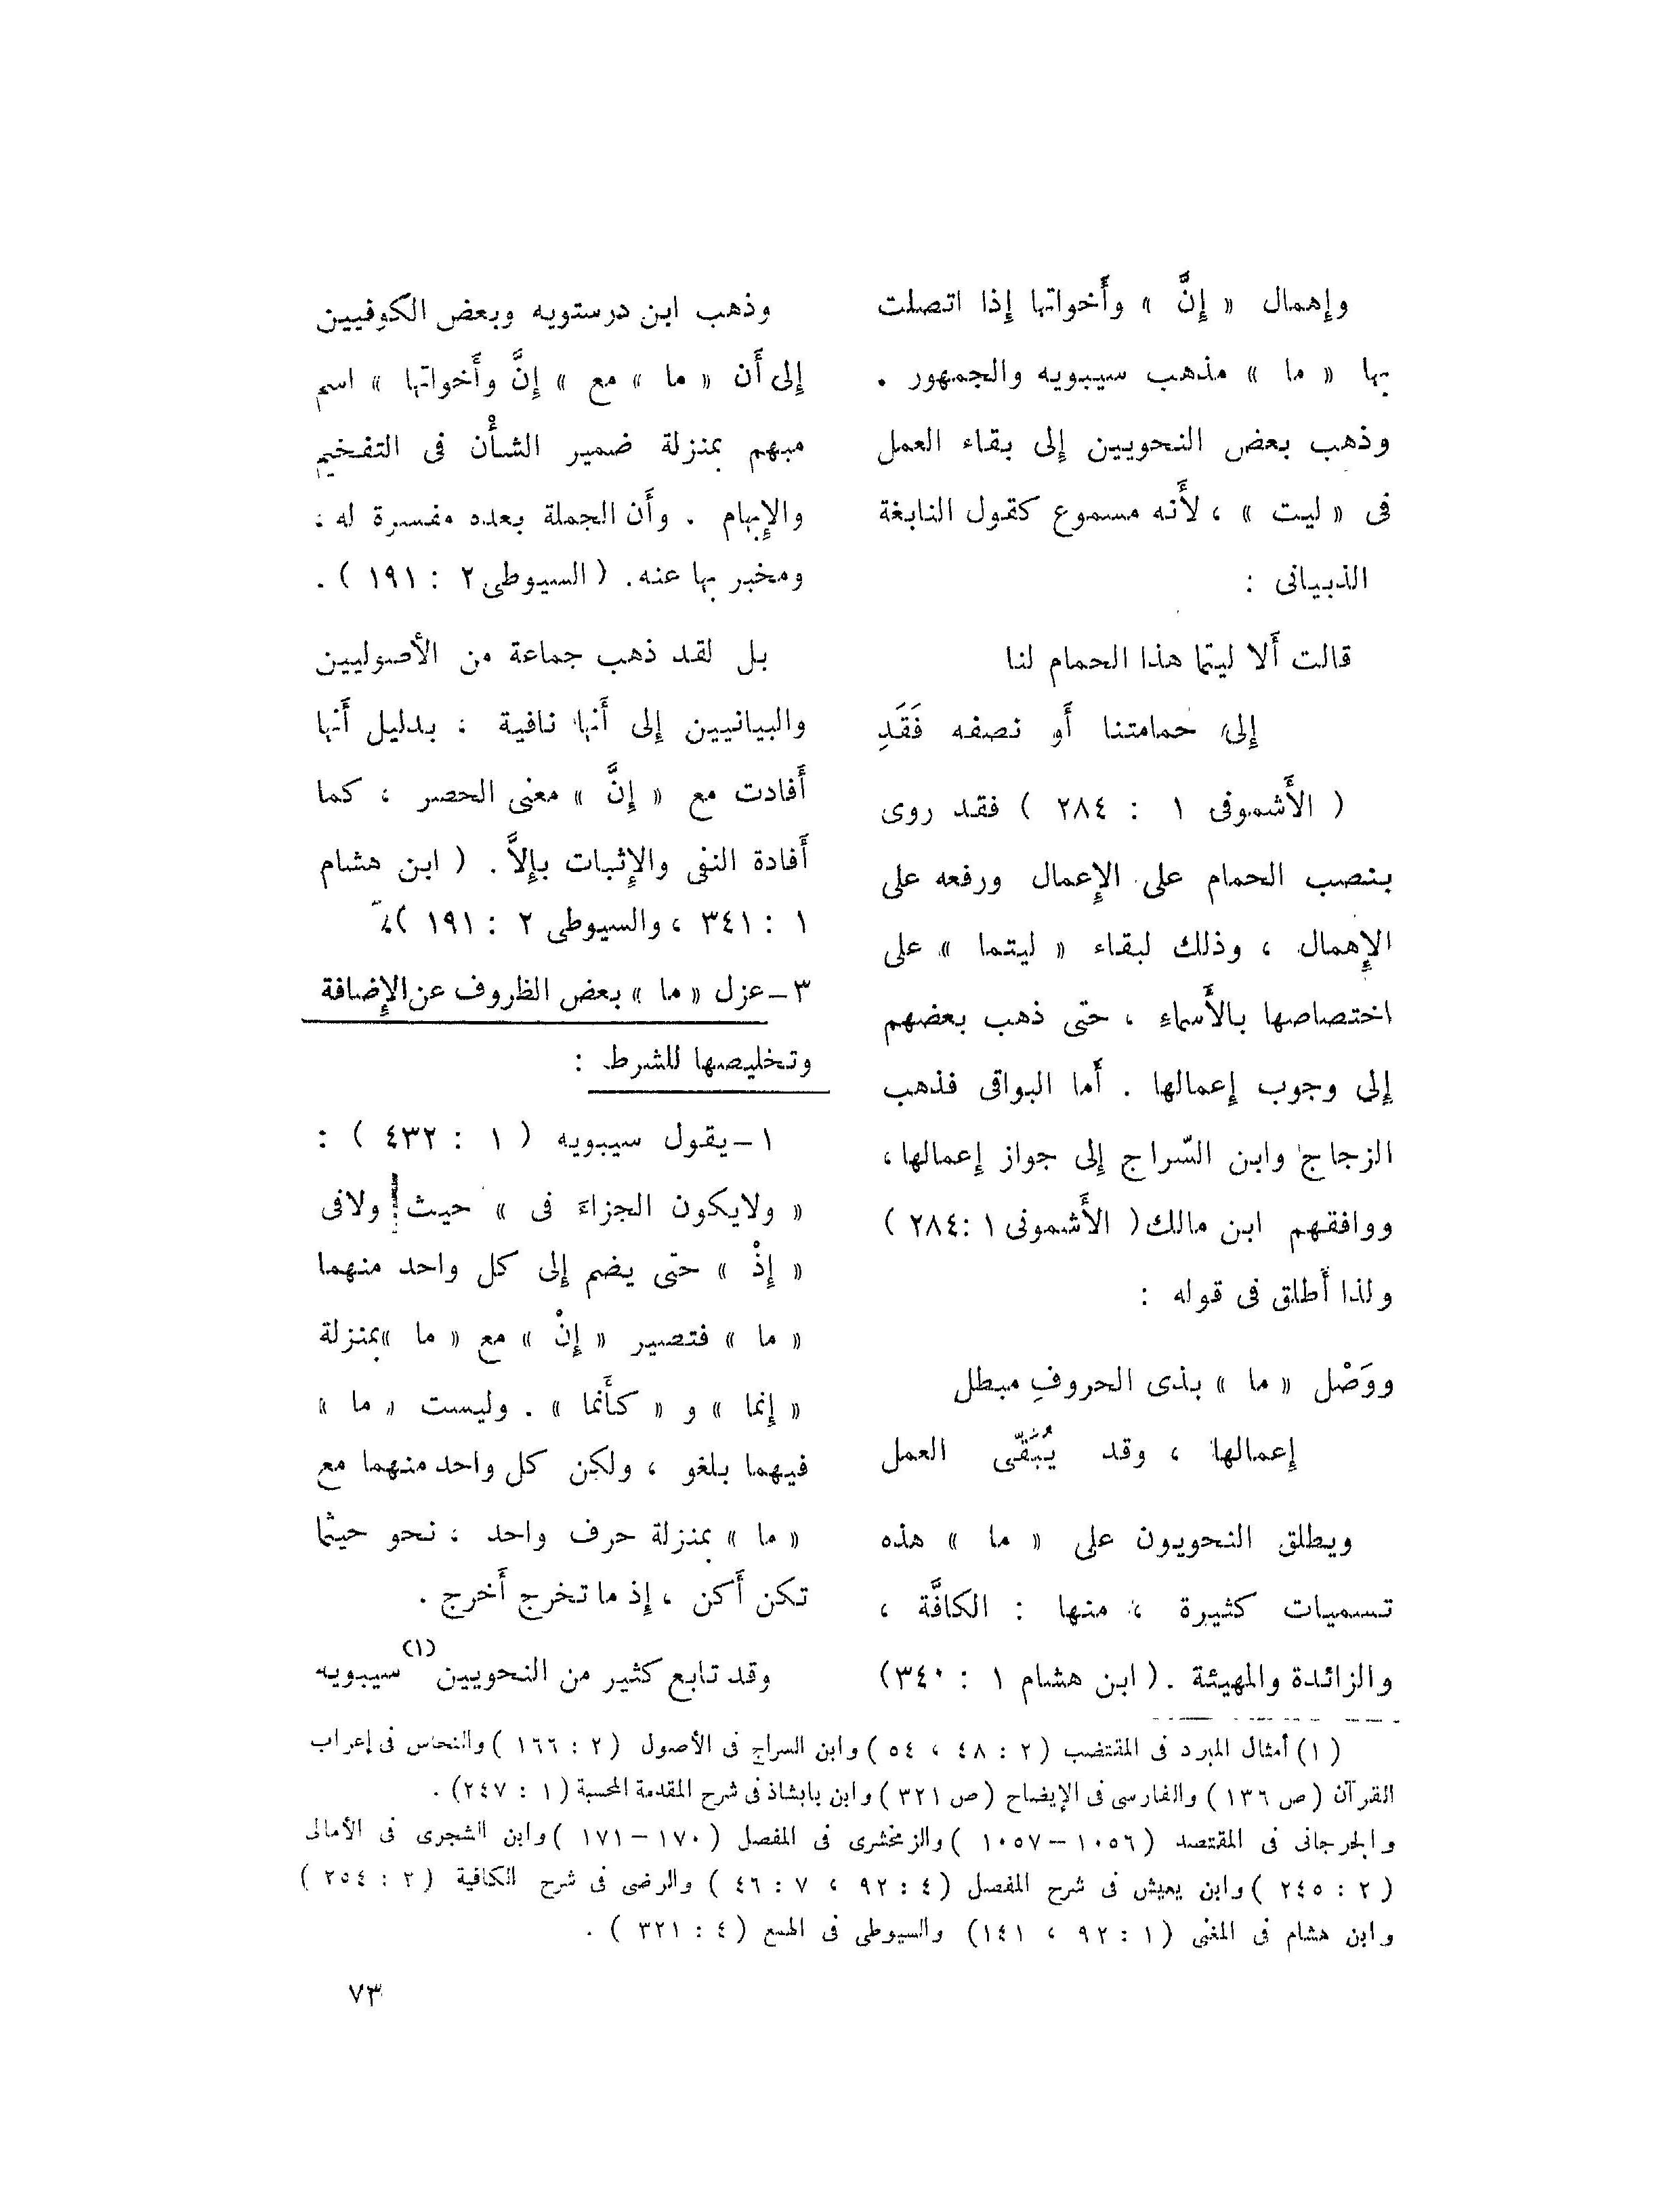 وإهمال « إِنَّ » وأَخواتها إِذا اتصلت
بها « ما » مذهب سيبويه والجمهور .
وذهب بعض النحويين إِلى بقاء العمل
فى « ليت » ، لأَنه مسموع كقول النابغة
الذبيانى :
قالت أَلا ليتما هذا الحمام لنا
إِلى حمامتنا أَو نصفه فَقَدِ
( الأَشموفى ١ : ٢٨٤ ) فقد روى
بنصب الحمام على الإِعمال ورفعه على
الإِهمال ، وذلك لبقاء « ليتما » على
اختصاصها بالأَسماءِ ، حتى ذهب بعضهم
إِلى وجوب إِعمالها . أَما البواقى فذهب
الزجاج وابن السّراج إِلى جواز إِعمالها ،
ووافقهم ابن مالك ( الأَشمونى ١ : ٢٨٤ )
ولذا أَطلق فى قوله :
ووَصْل « ما » بذى الحروفِ مبطل
إِعمالها ، وقد يُبَقَّى العمل
ويطلق النحويون على « ما » هذه
تسميات كثيرة ، منها : الكافَّة ،
والزائدة والمهيئة . ( ابن هشام ١ : ٣٤٠ )
وذهب ابن درستويه وبعض الكوفيين
إِلى أَن « ما » مع » إِنَّ وأَخواتها » اسم
مبهم بمنزلة ضمير الشأْن فى التفخيم
والإِبهام . وأَن الجملة بعده مفسرة له ،
ومخبر بها عنه . ( السيوطى ٢ : ١٩١ ) .
بل لقد ذهب جماعة من الأصوليين
والبيانيين إِلى أَنها نافية ، بدليل أَنها
أَفادت مع « إِنَّ » معنى الحصر ، كما
أَفادة النفى والإِثبات بإِلاَّ . ( ابن هشام
١ : ٣٤١ ، والسيوطى ٢ : ١٩١ )
٣ - عزل « ما » بعض الظروف عن الإِضافة
وتخليصها للشرط :
١ - يقول سيبويه ( ١ : ٤٣٢ ) :
« ولايكون الجزاءَ فى » حيث ولافى
« إِذْ » حتى يضم إِلى كل واحد منهما
« ما » فتصير « إِنْ » مع « ما » بمنزلة
« إِنما » و « كأَنما » . وليست « ما »
فيهما بلغو ، ولكن كل واحد منهما مع
« ما » بمنزلة حرف واحد ، نحو حيثما
تكن أَكن ، إِذ ما تخرج أَخرج .
وقد تابع كثير من النحويين (١) سيبويه
( ١ ) أمثال المبرد فى المقتضب ( ٢ : ٤٨ ، ٥٤ ) وابن السراج فى الأصول ( ٢ : ١٦٦ ) والنحاس فى إعراب
القرآن ( ص ١٣٦ ) والفارسى فى الإيضاح ( ص ٣٢١ ) وابن بابشاذ فى شرح المقدمة المحسبة ( ١ : ٢٤٧ ) .
والجرجانى فى المقتصد ( ١٠٥٦ - ١٠٥٧ ) والزمخشرى فى المفصل ( ١٧٠ - ١٧١ ) وابن الشجرى فى الأمالى
( ٢ : ٢٤٥ ) وابن يعيش فى شرح المفصل ( ٤ : ٩٢ ، ٧ : ٤٦ ) والرضى فى شرح الكافية ( ٢ : ٢٥٤ )
وابن هشام فى المغنى ( ١ : ٩٢ ، ١٤١ ) والسيوطى فى الهمع ( ٤ : ٣٢١ ) .
٧٣